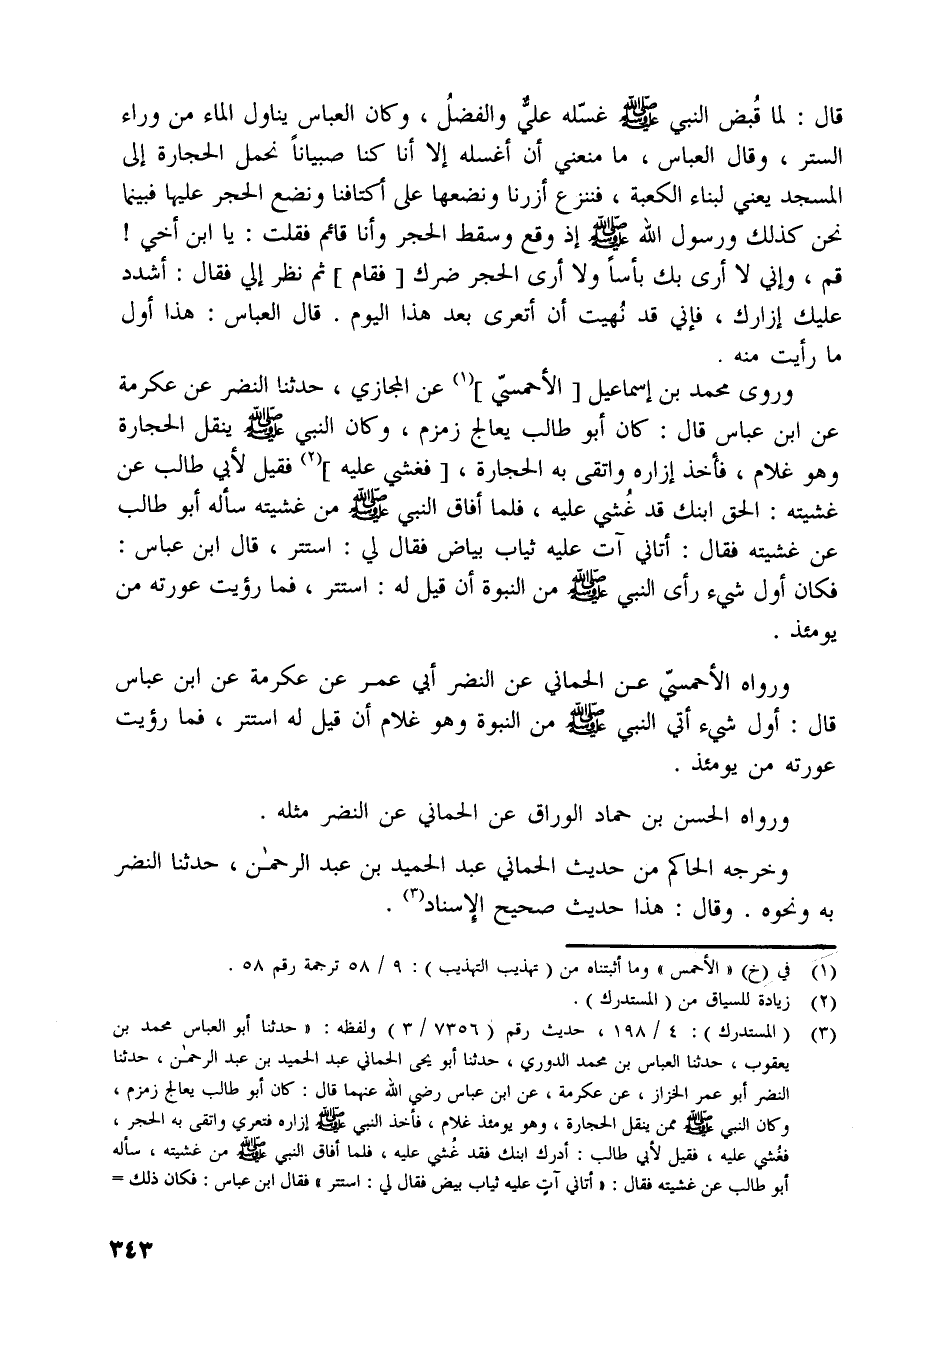 قال : لما قُبض النبي ﷺ غسّله عليٌّ والفضلُ ، وكان العباس يناول الماء من وراء
الستر ، وقال العباس ، ما منعني أن أغسله إلا أنا كنا صبياناً نحمل الحجارة إلى
المسجد يعني لبناء الكعبة ، فننزع أزرنا ونضعها على أكتافنا ونضع الحجر عليها فبينما
نحن كذلك ورسول الله ﷺ إذ وقع وسقط الحجر وأنا قائم فقلت : يا ابن أخي !
قم ، وإني لا أرى بك بأساً ولا أرى الحجر ضرك [ فقام ] ثم نظر إلي فقال : أشدد
عليك إزارك ، فإني قد نُهيت أن أتعرى بعد هذا اليوم . قال العباس : هذا أول
ما رأيت منه .
وروى محمد بن إسماعيل [ الأحمسيّ ](١) عن المجازي ، حدثنا النضر عن عكرمة
عن ابن عباس قال : كان أبو طالب يعالج زمزم ، وكان النبي ﷺ ينقل الحجارة
وهو غلام ، فأخذ إزاره واتقى به الحجارة ، [ فغشي عليه ](٢) فقيل لأبي طالب عن
غشيته : الحق ابنك قد غُشي عليه ، فلما أفاق النبي ﷺ من غشيته سأله أبو طالب
عن غشيته فقال : أتاني آت عليه ثياب بياض فقال لي : استتر ، قال ابن عباس :
فكان أول شيء رأى النبي ﷺ من النبوة أن قيل له : استتر ، فما رؤيت عورته من
يومئذ .
ورواه الأحمسيّ عن الحماني عن النضر أبي عمر عن عكرمة عن ابن عباس
قال : أول شيء أتي النبي ﷺ من النبوة وهو غلام أن قيل له استتر ، فما رؤيت
عورته من يومئذ .
ورواه الحسن بن حماد الوراق عن الحماني عن النضر مثله .
وخرجه الحاكم من حديث الحماني عبد الحميد بن عبد الرحمٰن ، حدثنا النضر
به ونحوه . وقال : هذا حديث صحيح الإسناد(٣) .
(١) في (خ) « الأحمس » وما أثبتناه من ( تهذيب التهذيب ) : ٩ / ٥٨ ترجمة رقم ٥٨ .
(٢) زيادة للسياق من ( المستدرك ) .
(٣) ( المستدرك ) : ٤ / ١٩٨ ، حديث رقم ( ٧٣٥٦ / ٣ ) ولفظه : « حدثنا أبو العباس محمد بن
يعقوب ، حدثنا العباس بن محمد الدوري ، حدثنا أبو يحيى الحماني عبد الحميد بن عبد الرحمٰن ، حدثنا
النضر أبو عمر الخزاز ، عن عكرمة ، عن ابن عباس رضي الله عنهما قال : كان أبو طالب يعالج زمزم ،
وكان النبي ﷺ ممن ينقل الحجارة ، وهو يومئذ غلام ، فأخذ النبي ﷺ إزاره فتعرى واتقى به الحجر ،
فغُشي عليه ، فقيل لأبي طالب : أدرك ابنك فقد غُشي عليه ، فلما أفاق النبي ﷺ من غشيته ، سأله
أبو طالب عن غشيته فقال : « أتاني آتٍ عليه ثياب بيض فقال لي : استتر » فقال ابن عباس : فكان ذلك =
٣٤٣